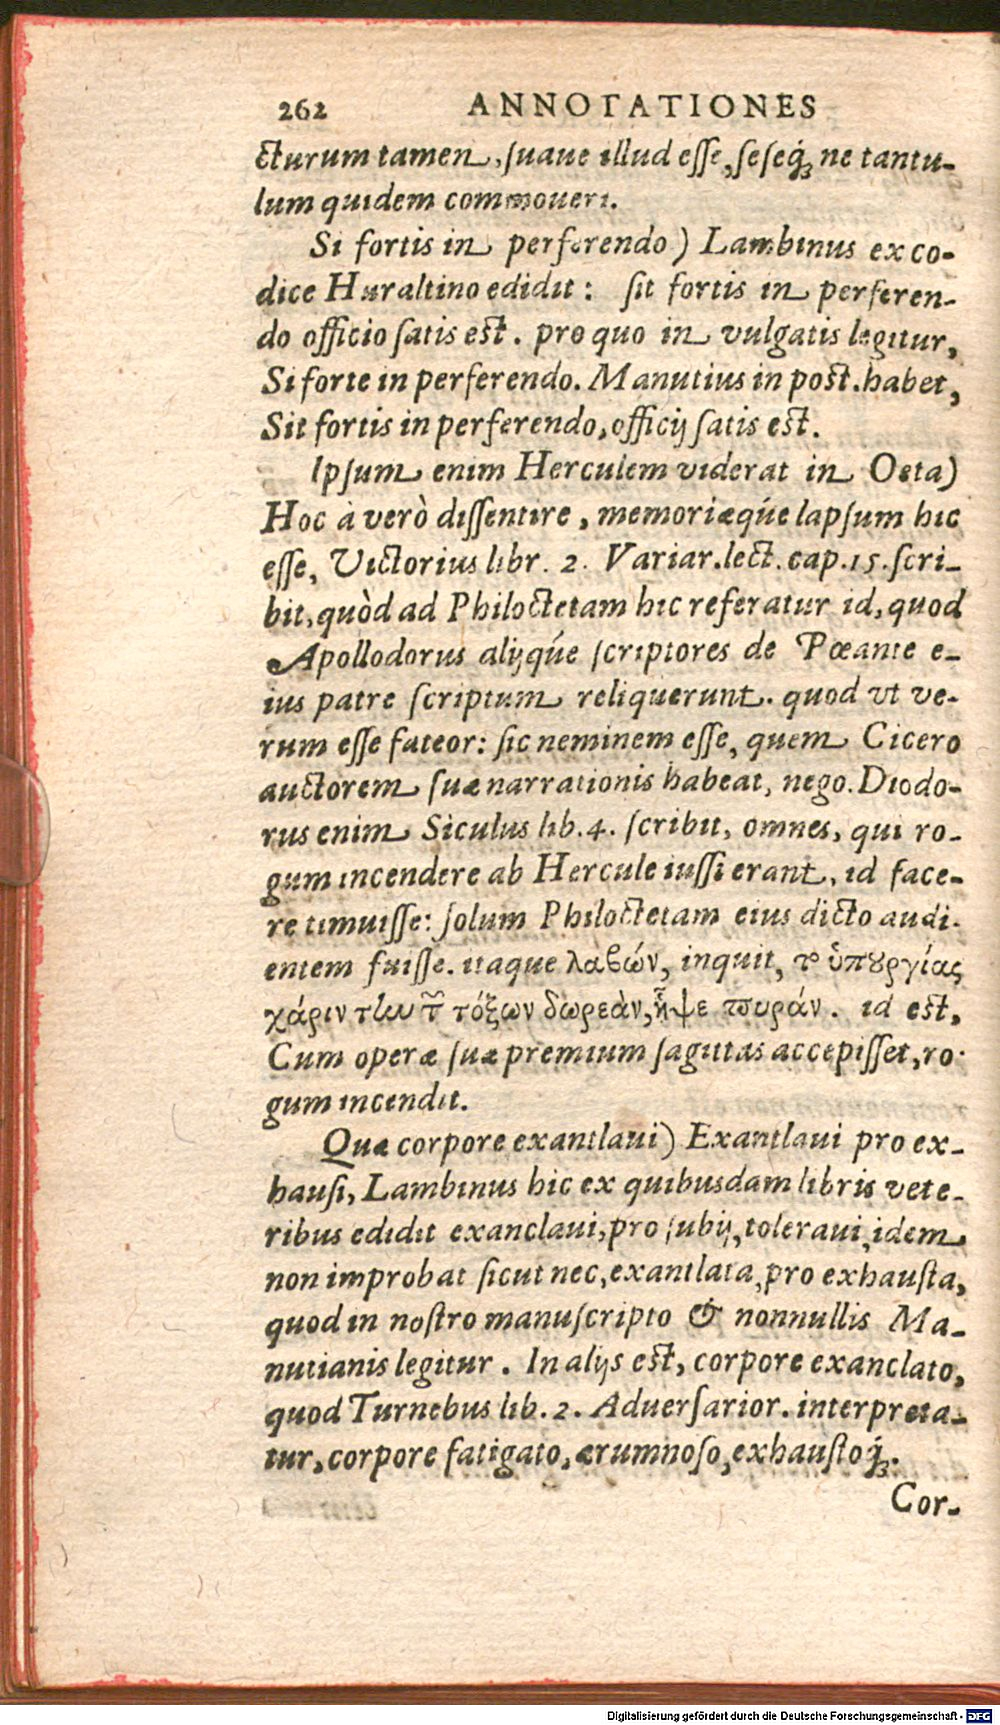 262 ANNOTATIONES
cturum tamen, suaue illud esse, seseq́; ne tantu-
lum quidem commoueri.
Si fortis in perferendo) Lambinus ex co-
dice Huraltino edidit: sit fortis in perferen-
do officio satis est. pro quo in vulgatis legitur,
Si forte in perferendo. Manutius in post. habet,
Sit fortis in perferendo, officij satis est.
Ipsum enim Herculem viderat in Oeta)
Hoc à verò dissentire, memoriæqúe lapsum hic
esse, Victorius libr. 2. Variar. lect. cap. 15. scri-
bit, quòd ad Philoctetam hic referatur id, quod
Apollodorus alijqúe scriptores de Pœante e-
ius patre scriptum reliquerunt. quod vt ve-
rum esse fateor: sic neminem esse, quem Cicero
auctorem suæ narrationis habeat, nego. Diodo-
rus enim Siculus lib. 4. scribit, omnes, qui ro-
gum incendere ab Hercule iussi erant, id face-
re timuisse: solum Philoctetam eius dicto audi-
entem fuisse. itaque λαβών, inquit, τ ὑπουργίας
χάριν τὴν τ῀ τόξων δωρεὰν, ἧψε πυράν. id est,
Cum operæ suæ premium sagittas accepisset, ro-
gum incendit.
Quæ corpore exantlaui) Exantlaui pro ex-
hausi, Lambinus hic ex quibusdam libris vete-
ribus edidit exanclaui, pro subij, toleraui, idem
non improbat sicut nec, exantlata, pro exhausta,
quod in nostro manuscripto & nonnullis Ma-
nutianis legitur. In alijs est, corpore exanclato,
quod Turnebus lib. 2. Aduersarior. interpreta-
tur, corpore fatigato, ærumnoso, exhaustoq́;.
Cor-
Digitalisierung gefördert durch die Deutsche Forschungsgemeinschaft - DFG